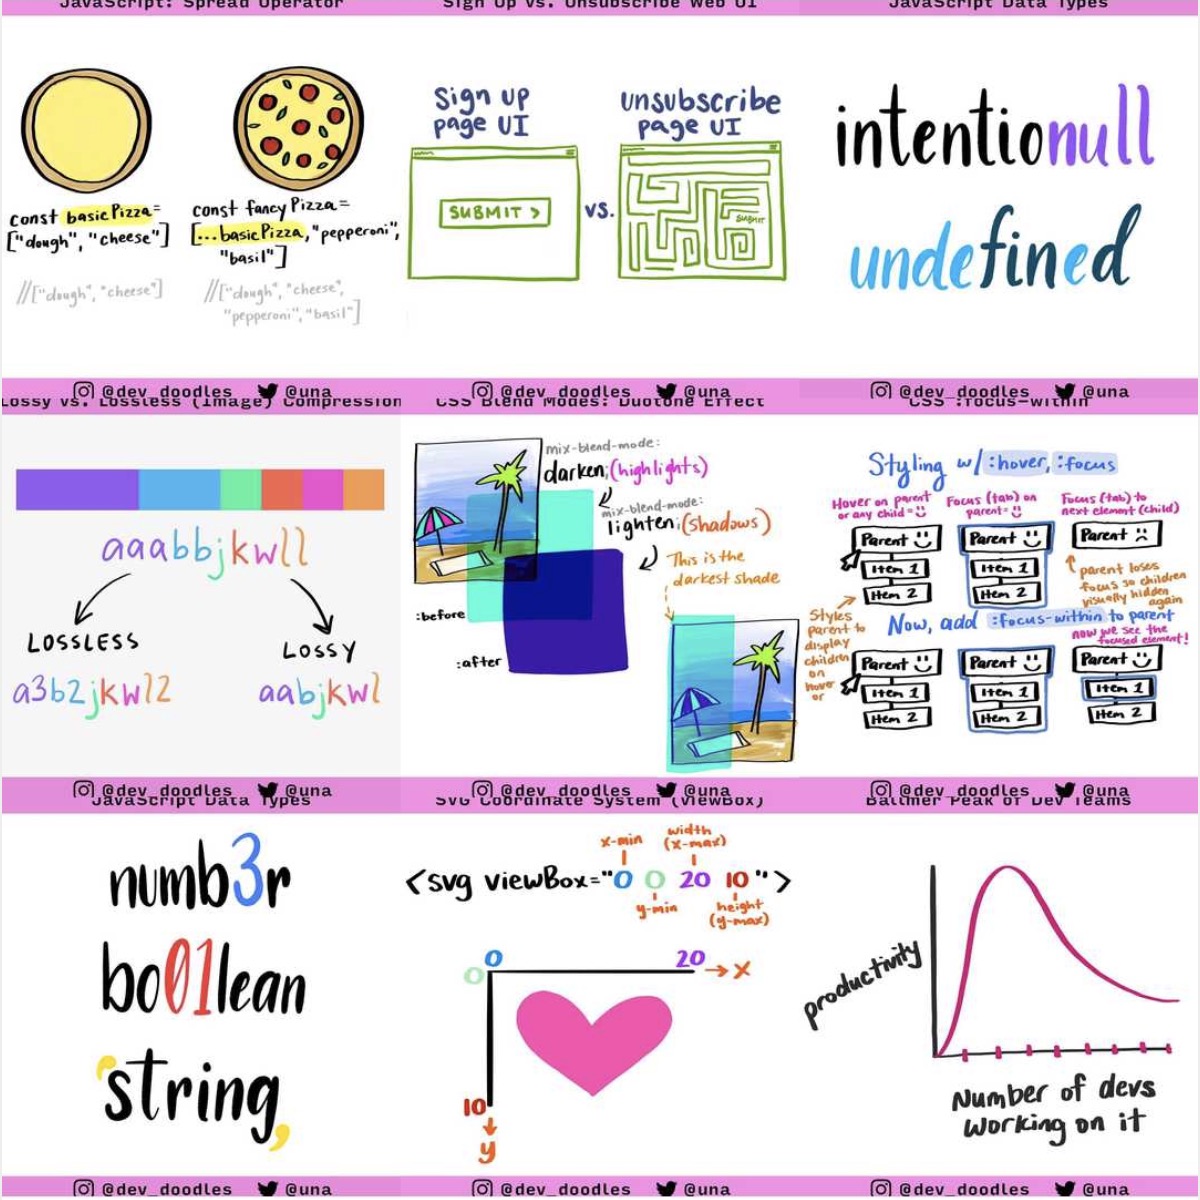 JavaScript: Spread Operator
const basicPizza=
["dough", "cheese"]
//["dough", "cheese"]
const fancyPizza=
[...basicPizza, "pepperoni",
"basil"]
//["dough", "cheese",
"pepperoni", "basil"]
@dev_doodles @una
Sign Up vs. Unsubscribe Web UI
Sign up
page UI
SUBMIT >
vs.
unsubscribe
page UI
SUBMIT
@dev_doodles @una
JavaScript Data Types
intentionull
undefined
@dev_doodles @una
Lossy vs. Lossless (Image) Compression
aaabbjkwll
LOSSLESS
a3b2jkwl2
LOSSY
aabjkwl
@dev_doodles @una
CSS Blend Modes: Duotone Effect
mix-blend-mode:
darken;(highlights)
mix-blend-mode:
lighten;(shadows)
This is the
darkest shade
:before
:after
@dev_doodles @una
CSS :focus-within
Styling w/ :hover, :focus
Hover on parent
or any child=
Focus (tab) on
parent=
Focus (tab) to
next element (child)
Parent
Item 1
Item 2
Parent
Item 1
Item 2
Parent
parent loses
focus so children
visually hidden
again
Styles
parent to
display
children
on
hover
or
Now, add :focus-within to parent
now we see the
focused element!
Parent
Item 1
Item 2
Parent
Item 1
Item 2
Parent
Item 1
Item 2
@dev_doodles @una
JavaScript Data Types
numb3r
bo01lean
'string,
@dev_doodles @una
SVG Coordinate System (ViewBox)
x-min
width
(x-max)
<svg viewBox="0 0 20 10">
y-min
height
(y-max)
0
0
20
x
10
y
@dev_doodles @una
Ballmer Peak of Dev Teams
productivity
Number of devs
working on it
@dev_doodles @una